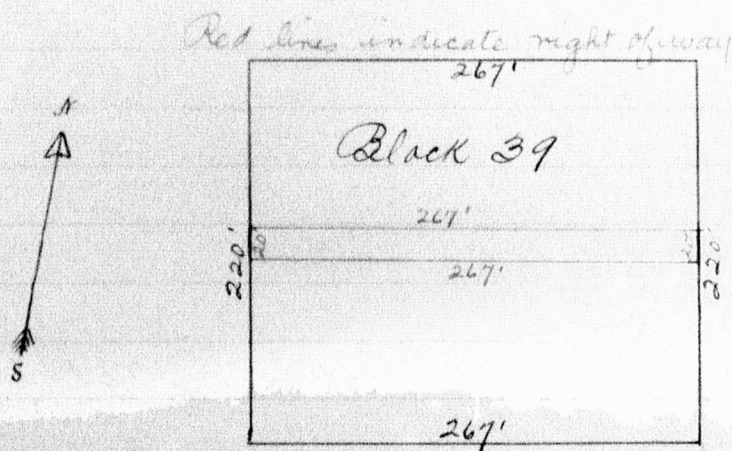 Red lines indicate right of way
267'
N
Block 39
267'
20'
20'
220'
267'
220'
S
267'